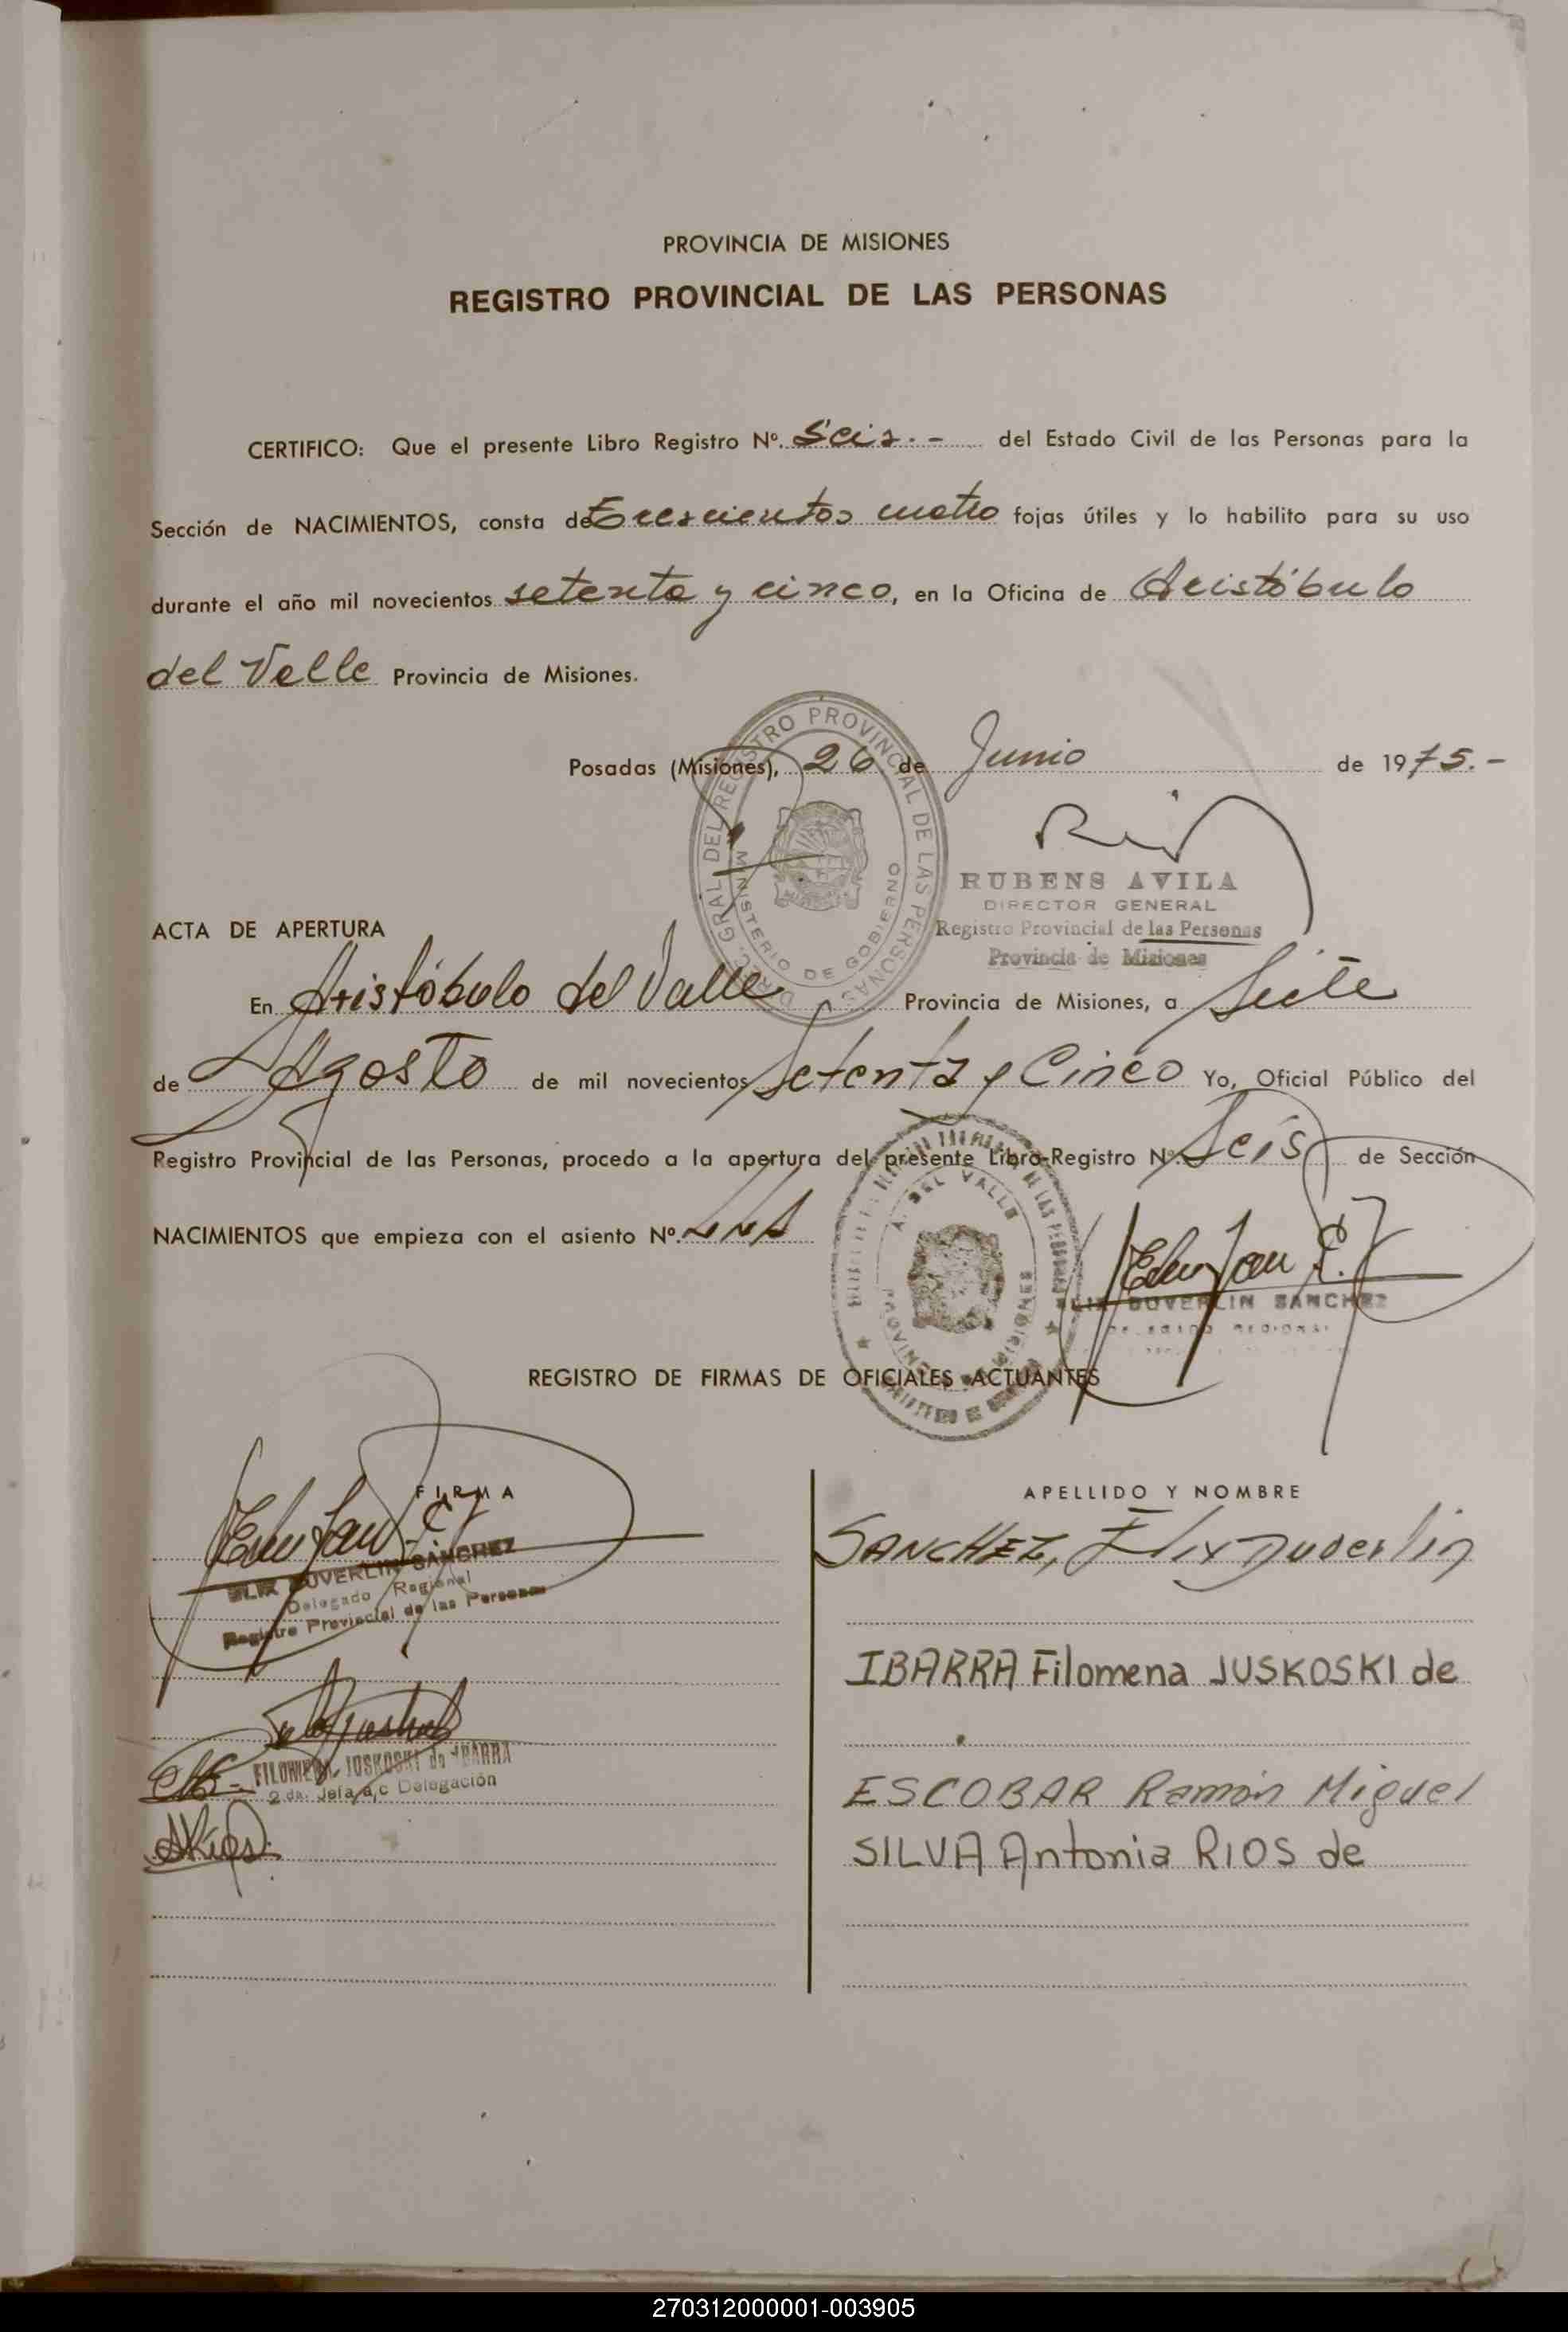 PROVINCIA DE MISIONES
REGISTRO PROVINCIAL DE LAS PERSONAS
CERTIFICO: Que el presente Libro Registro Nº. Seis.- del Estado Civil de las Personas para la
Sección de NACIMIENTOS, consta de Trescientos cuatro fojas útiles y lo habilito para su uso
durante el año mil novecientos setenta y cinco, en la Oficina de Aristóbulo
del Valle Provincia de Misiones.
Posadas (Misiones), 26 de Junio de 1975.-
DIREC. GRAL DEL REGISTRO PROVINCIAL DE LAS PERSONAS
MINISTERIO DE GOBIERNO
RUBENS AVILA
DIRECTOR GENERAL
Registro Provincial de las Personas
Provincia de Misiones
ACTA DE APERTURA
En Aristóbulo del Valle Provincia de Misiones, a Siete
de Agosto de mil novecientos Setenta y Cinco Yo, Oficial Público del
Registro Provincial de las Personas, procedo a la apertura del presente Libro-Registro Nº. Seis de Sección
NACIMIENTOS que empieza con el asiento Nº.
A. DEL VALLE
DUVERLIN SANCHEZ
REGISTRO DE FIRMAS DE OFICIALES ACTUANTES
FIRMA
APELLIDO Y NOMBRE
ELIX DUVERLIN SANCHEZ
Delegado Regional
Registro Provincial de las Personas
SANCHEZ, Elix Duverlin
IBARRA Filomena JUSKOSKI de
FILOMENA JUSKOSKI de IBARRA
2 da. Jefa a/c Delegación
ESCOBAR Ramón Miguel
ARios
SILVA Antonia RIOS de
270312000001-003905